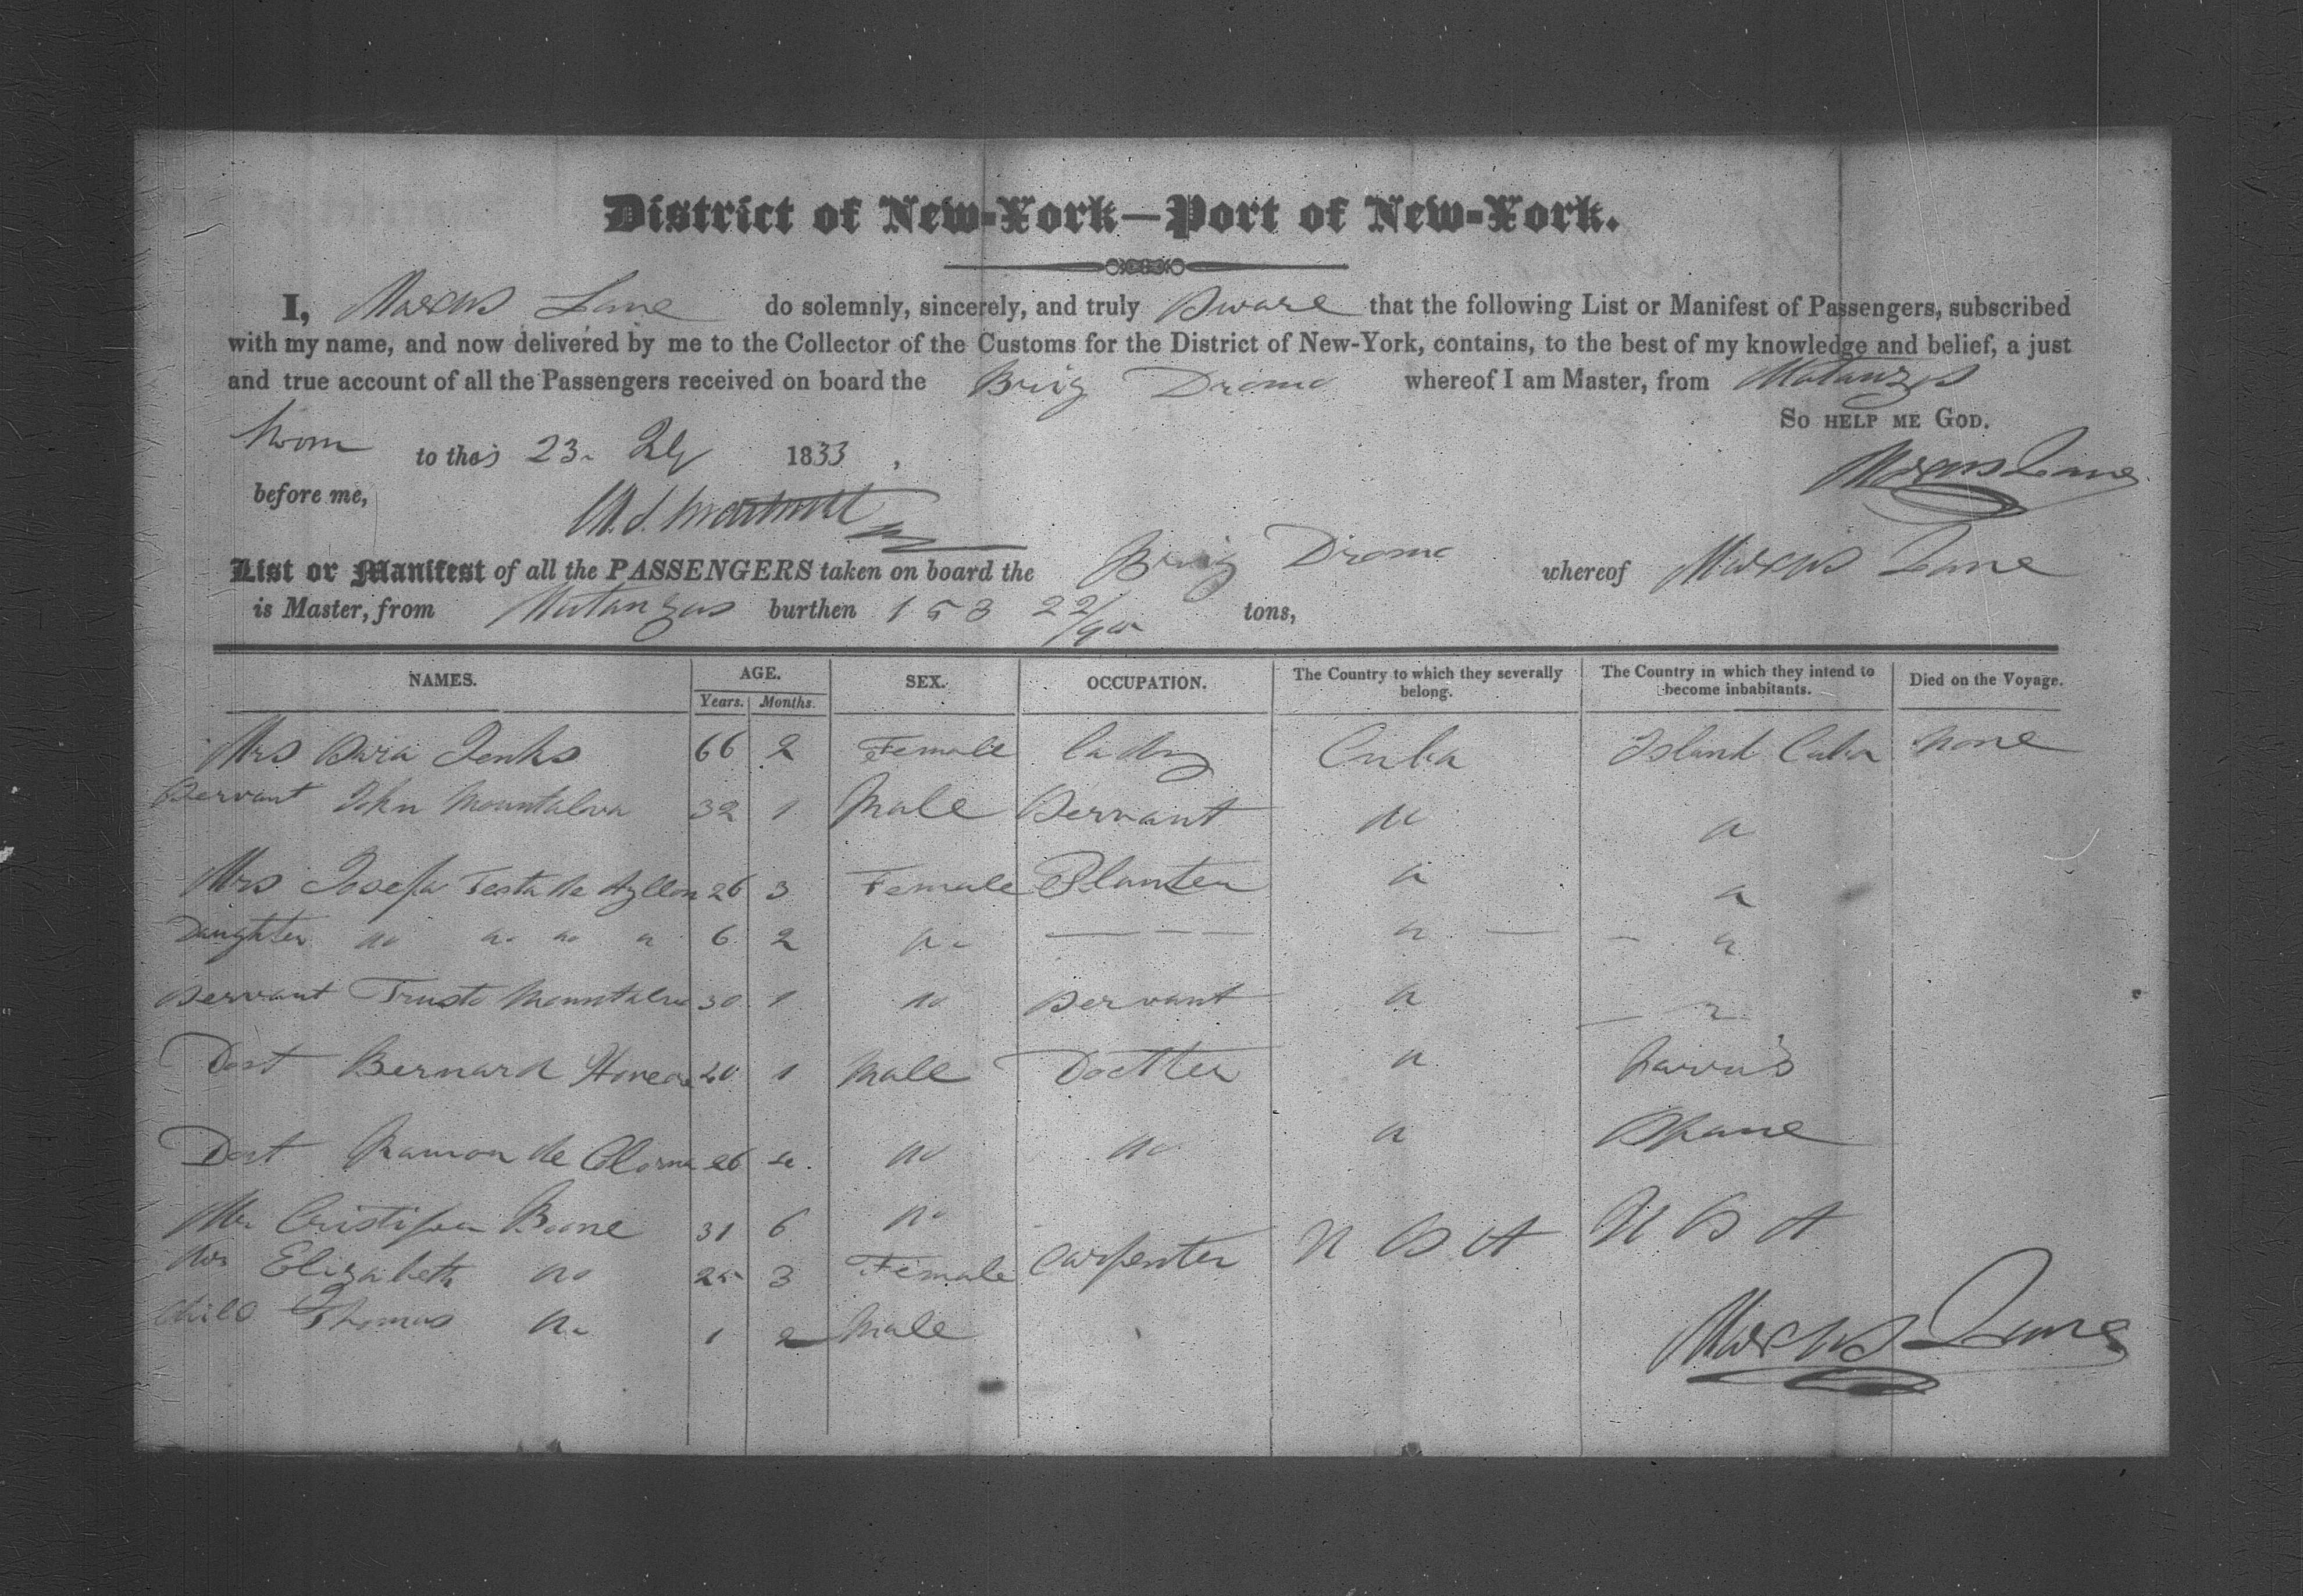 District of New-York—Port of New-York.
I, Marcus Lane do solemnly, sincerely, and truly Sware that the following List or Manifest of Passengers, subscribed
with my name, and now delivered by me to the Collector of the Customs for the District of New-York, contains, to the best of my knowledge and belief, a just
and true account of all the Passengers received on board the Brig Dromo whereof I am Master, from Matanzas
So help me God.
Sworn to this 23 July 1833,
Marcus Lane
before me,
List or Manifest of all the PASSENGERS taken on board the Brig Dromo whereof Marcus Lane
is Master, from Matanzas burthen 153 22/95 tons,
NAMES. AGE. SEX. OCCUPATION. The Country to which they severally belong. The Country in which they intend to become inhabitants. Died on the Voyage.
Years. Months.
Mrs Sara Jenks 66 2 Female lady Cuba Island Cuba None
Servant John Mountalva 32 1 Male Servant " "
Mrs Josefa Testa de Ayllon 26 3 Female Planter " "
Daughter " " " " 6 2 " — — — " "
Servant Mountalva 30 1 " Servant " "
Doct Bernard 20 1 Male Doctter "
Doct Ramon de 26 " " " Spane
Mr Cristifer Boone 31 6 "
Mrs Elizabeth " 25 3 Female Carpenter U S A U S A
Child Thomas " 1 2 Male
Marcus Lane